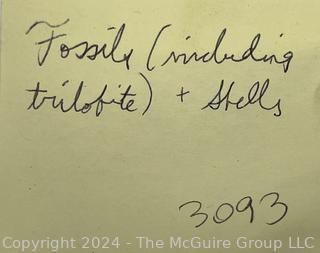 Fossils (including
trilobite) + Shells
3093
Copyright © 2024 - The McGuire Group LLC